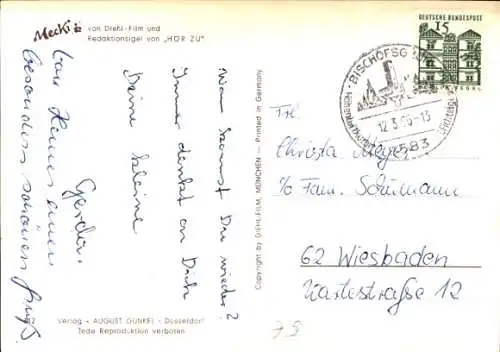 Mecki
von Diehl-Film und
Redaktionsigel von „HÖR ZU“
Wann kommst Du wieder?
Immer denkt an Dich
Deine kleine
Gerda.
besonders schönen Gruß
Copyright by DIEHL-FILM, MÜNCHEN — Printed in Germany
DEUTSCHE BUNDESPOST
15
TEGEL
BISCHOFSG
12.3.66-13
6583
Frl.
Christa Meyer
c/o Fam. Schümann
62 Wiesbaden
Kartestraße 12
Verlag - AUGUST GUNKEL - Düsseldorf
Jede Reproduktion verboten